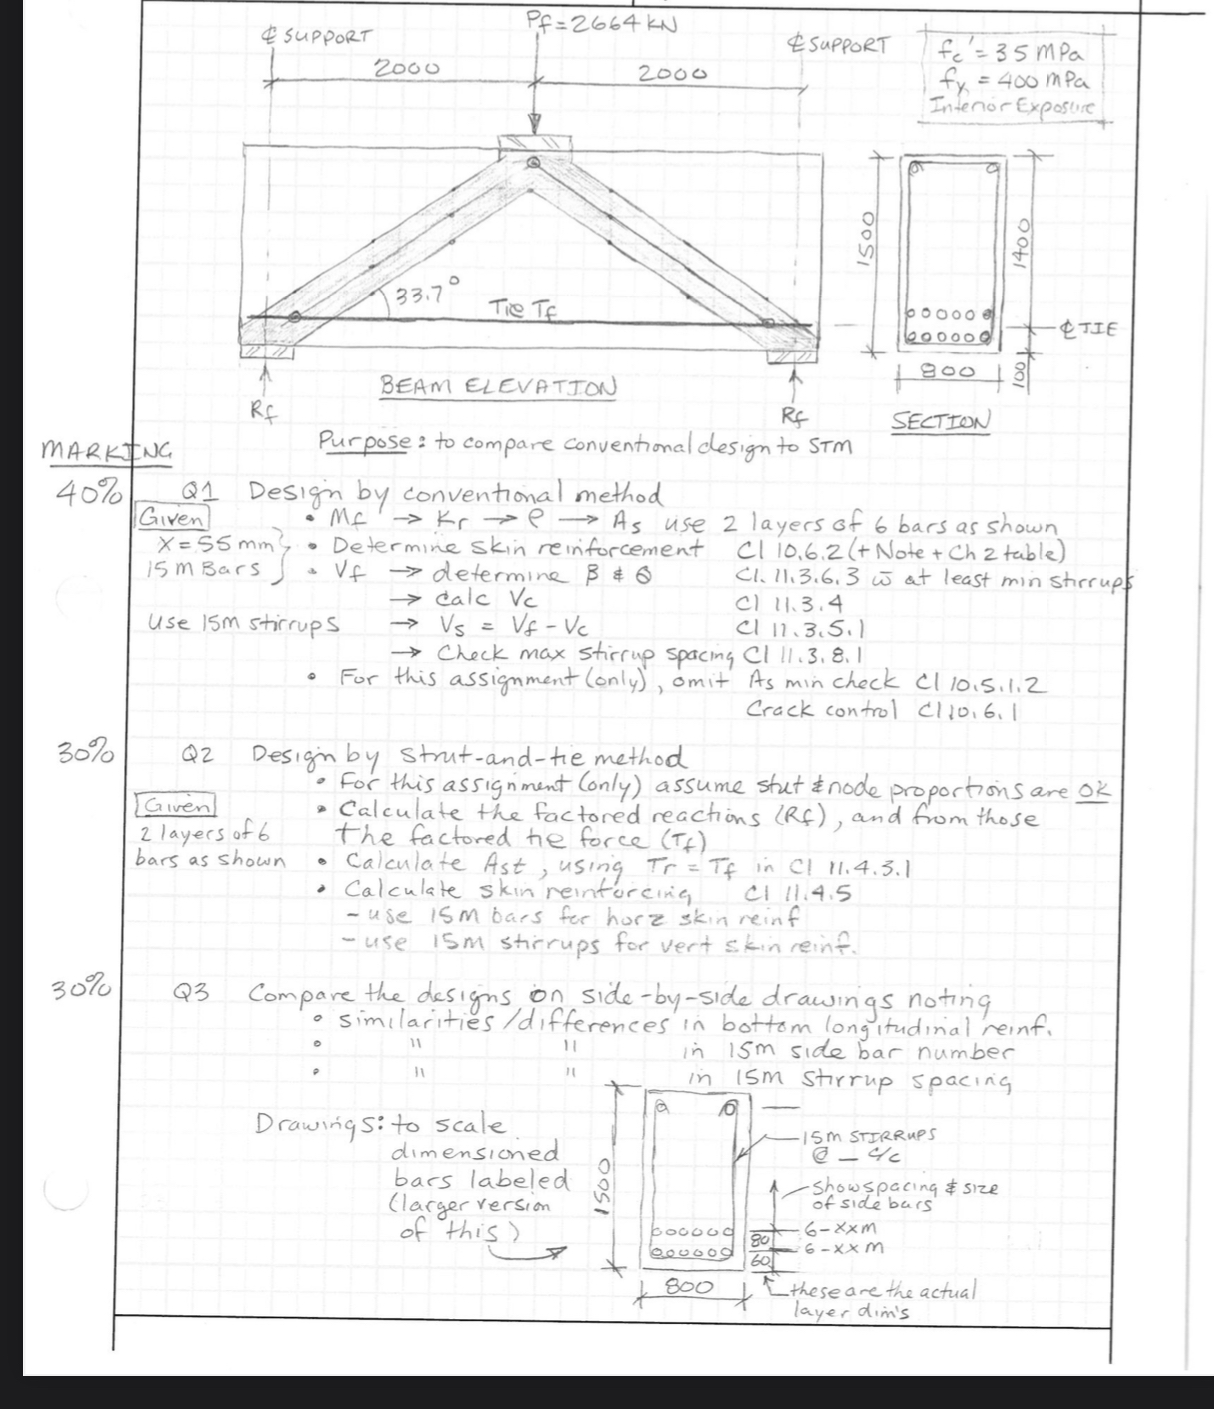 Pf = 2664 kN
℄ SUPPORT
℄ SUPPORT
2000
2000
fc' = 35 MPa
fy = 400 MPa
Interior Exposure
33.7°
Tie Tf
1500
1400
℄ TIE
800
100
BEAM ELEVATION
Rf
Rf
SECTION
Purpose: to compare conventional design to STM
MARKING
40% Q1 Design by conventional method
Given
• Mf → Kr → ρ → As use 2 layers of 6 bars as shown
X = 55 mm
• Determine skin reinforcement Cl 10.6.2 (+ Note + Ch 2 table)
15 m Bars
• Vf → determine β & θ Cl. 11.3.6.3 w̄ at least min stirrups
→ calc Vc Cl 11.3.4
Use 15m stirrups → Vs = Vf - Vc Cl 11.3.5.1
→ Check max stirrup spacing Cl 11.3.8.1
• For this assignment (only), omit As min check Cl 10.5.1.2
Crack control Cl 10.6.1
30% Q2 Design by strut-and-tie method
• For this assignment (only) assume stut & node proportions are OK
Given
• Calculate the factored reactions (Rf), and from those
2 layers of 6
the factored tie force (Tf)
bars as shown • Calculate Ast, using Tr = Tf in Cl 11.4.3.1
• Calculate skin reinforcing Cl 11.4.5
- use 15M bars for horz skin reinf
- use 15M stirrups for vert skin reinf.
30% Q3 Compare the designs on side-by-side drawings noting
• similarities/differences in bottom longitudinal reinf.
• " " in 15m side bar number
• " " in 15m stirrup spacing
Drawings: to scale
dimensioned
bars labeled
(larger version
of this)
1500
15m STIRRUPS
@ _ c/c
Show spacing & size
of side bars
80
6-xxm
6-xxm
60
800
these are the actual
layer dim's